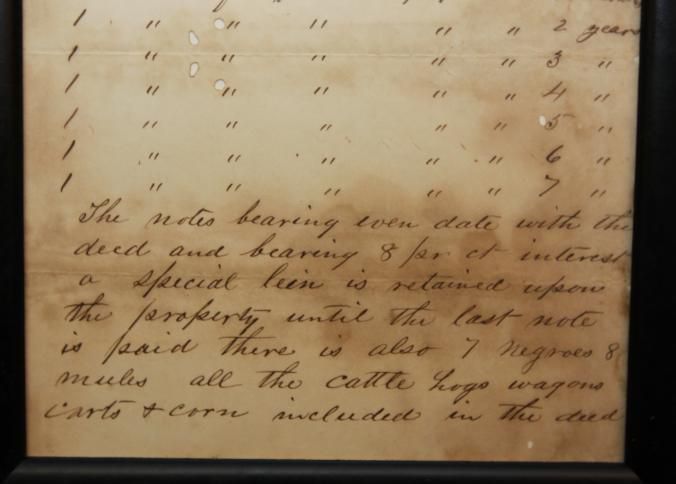 1 " " " " " 2 years
1 " " " " " 3 "
1 " " " " " 4 "
1 " " " " " 5 "
1 " " " " " 6 "
1 " " " " " 7 "
The notes bearing even date with the
deed and bearing 8 pr ct interest
a special lein is retained upon
the property until the last note
is paid there is also 7 negroes 8
mules all the cattle hogs wagons
carts & corn included in the deed